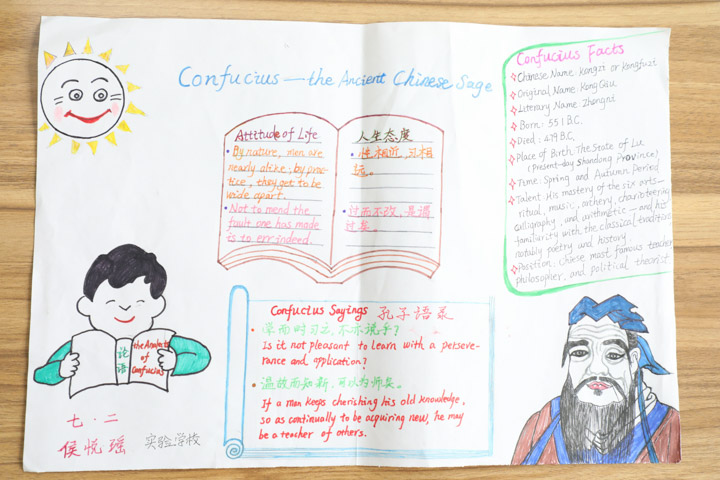 Confucius — the Ancient Chinese Sage
Attitude of Life
• By nature, men are
nearly alike; by prac-
tice, they get to be
wide apart.
• Not to mend the
fault one has made
is to err indeed.
人生态度
• 性相近,习相
远。
• 过而不改,是谓
过矣。
Confucius Facts
Chinese Name: Kongzi or Kongfuzi
Original Name: Kong Qiu
Literary Name: Zhongni
Born: 551 B.C.
Died: 479 B.C.
Place of Birth: The State of Lu
(Present-day Shandong Province)
Time: Spring and Autumn Period
Talent: His mastery of the six arts—
ritual, music, archery, charioteering
calligraphy, and arithmetic — and his
familiarity with the classical traditions
notably poetry and history
Position: Chinese most famous teacher
philosopher, and political theorist
the Analects
of
Confucius
论
语
Confucius Sayings 孔子语录
• 学而时习之,不亦说乎?
Is it not pleasant to learn with a perseve-
rance and application?
• 温故而知新,可以为师矣。
If a man keeps cherishing his old knowledge,
so as continually to be acquiring new, he may
be a teacher of others.
七·二
侯悦瑶 实验学校